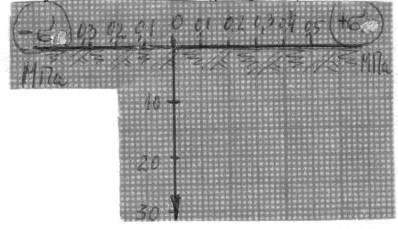 -σ 0,3 0,2 0,1 0 0,1 0,2 0,3 0,4 0,5 +σ
МПа МПа
10
20
30